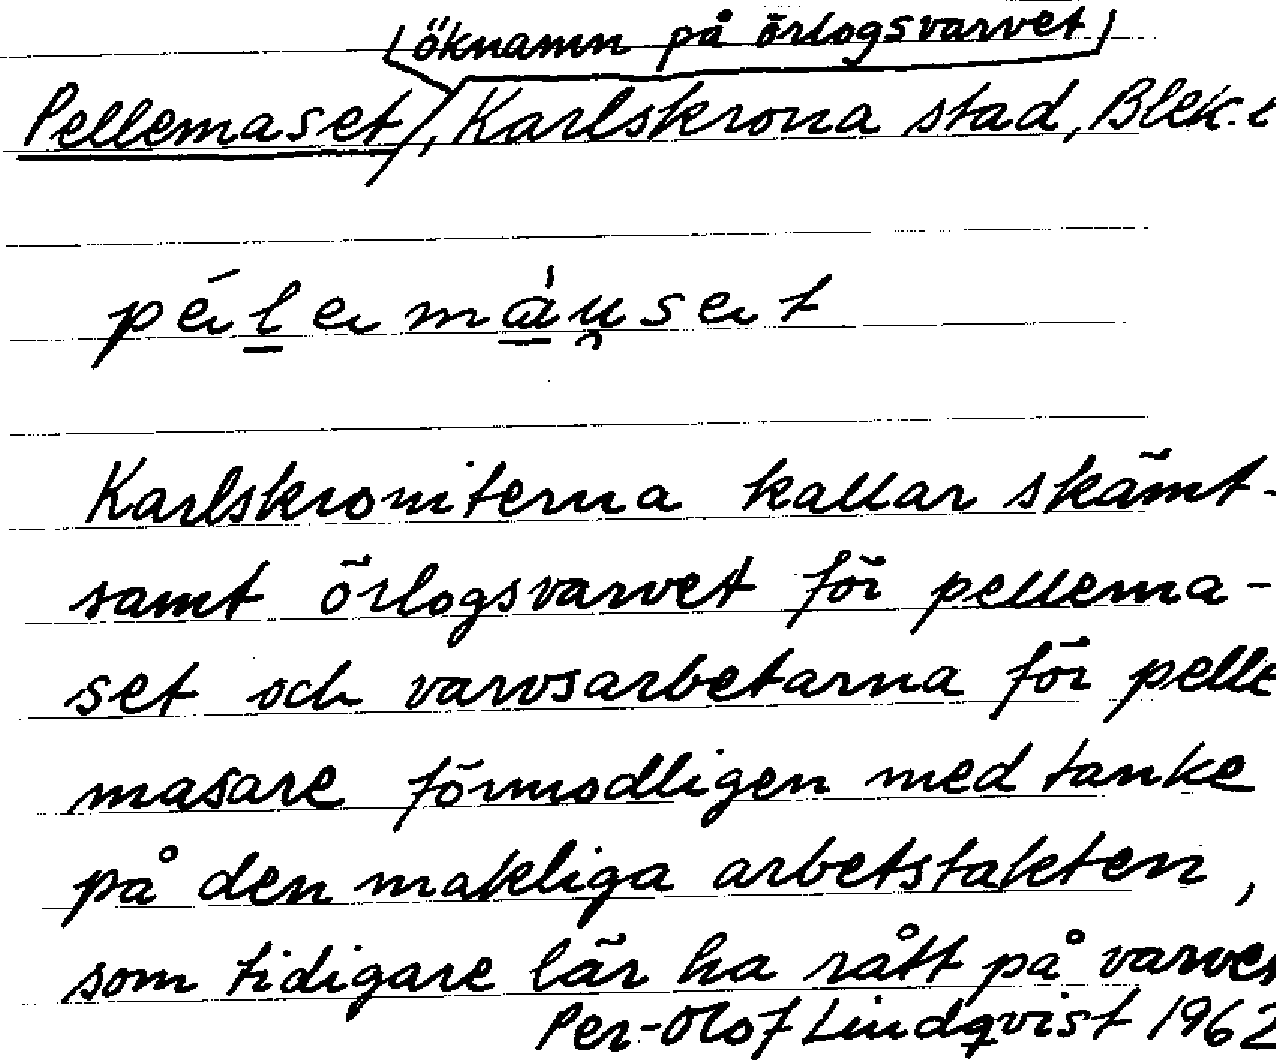 öknamn på örlogsvarvet
Pellemaset, Karlskrona stad, Blek.
pelemauset
Karlskroniterna kallar skämt-
samt örlogsvarvet för pellema-
set och varvsarbetarna för pelle
masare förmodligen med tanke
på den makliga arbetstakten,
som tidigare lär ha rått på varvet
Per-Olof Lindqvist 1962